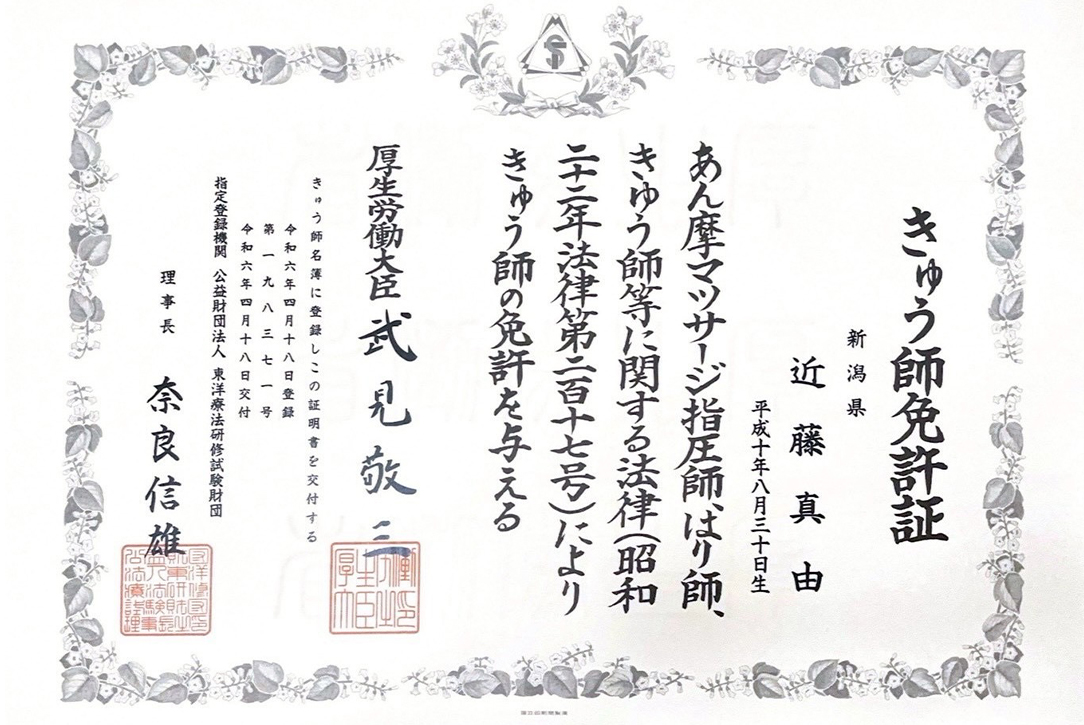 きゅう師免許証
新潟県
近藤真由
平成十年八月三十日生
あん摩マツサージ指圧師、はり師、
きゆう師等に関する法律(昭和
二十二年法律第二百十七号)により
きゅう師の免許を与える
厚生労働大臣 武見敬三
きゅう師名簿に登録しこの証明書を交付する
令和六年四月十八日登録
第一九八三七一号
令和六年四月十八日交付
指定登録機関 公益財団法人 東洋療法研修試験財団
理事長 奈良信雄